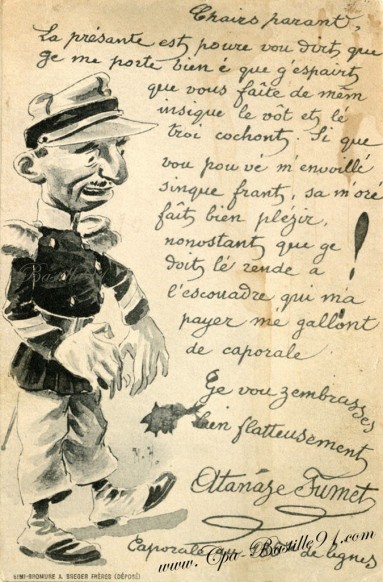 Chairs parant,
La présante est poure vou dirt, que
ge me porte bien é que g'espairt
que vous faite de mêm
insique le vôt et, lé
troi cochont. Si que
vou pou vé m'envoillé
sinque frant, sa m'ore
fait bien plézir,
nonostant que ge
doit lé rende a
l'escouadre qui m'a
payer me gallont
de caporale !
Ge vou zembrasses
bien flatteusement
Atanâze Fumet
Caporale de lignes
Bastille
www.Cpa-Bastille91.com
SIMI-BROMURE A. BREGER FRÈRES (DÉPOSÉ)